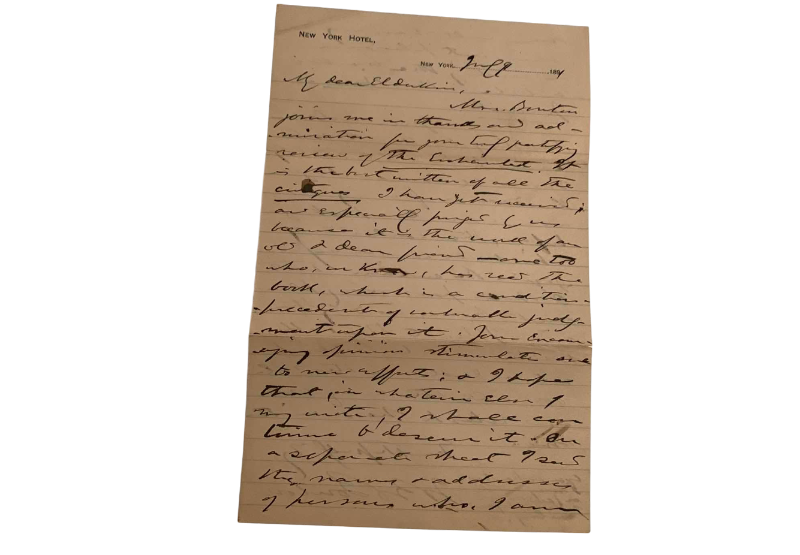 NEW YORK HOTEL,
NEW YORK, 189
My dear
Mrs. Bouton
joins me in thanks and ad-
miration for your
review of The Enchanted. It
is the best written of all the
critiques I have yet received;
and especially prized by us
because it is the work of an
old & dear friend - one too
who, we know, has read the
book, which is a condition-
precedent of valuable judg-
ment upon it. Your encour-
aging opinion stimulates me
to new efforts; & I hope
that, in whatever else I
may write, I shall con
tinue to deserve it. On
a separate sheet I send
the names & addresses
of persons who, I am